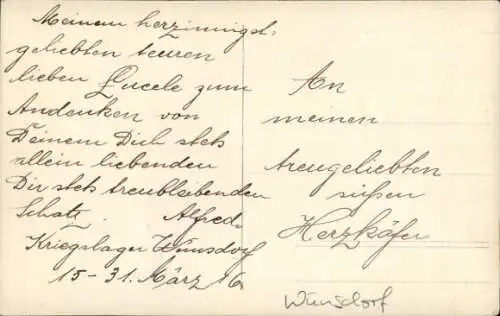 Meinem herzinnigst-
geliebten teuren
lieben Lucele zum
Andenken von
Deinem Dich stets
allein liebenden
Dir stets treubleibenden
Schatz. Alfred.
Kriegslager Wünsdorf
15-31. März 16
An
meinen
treugeliebten
süßen
Herzkäfer
Wünsdorf